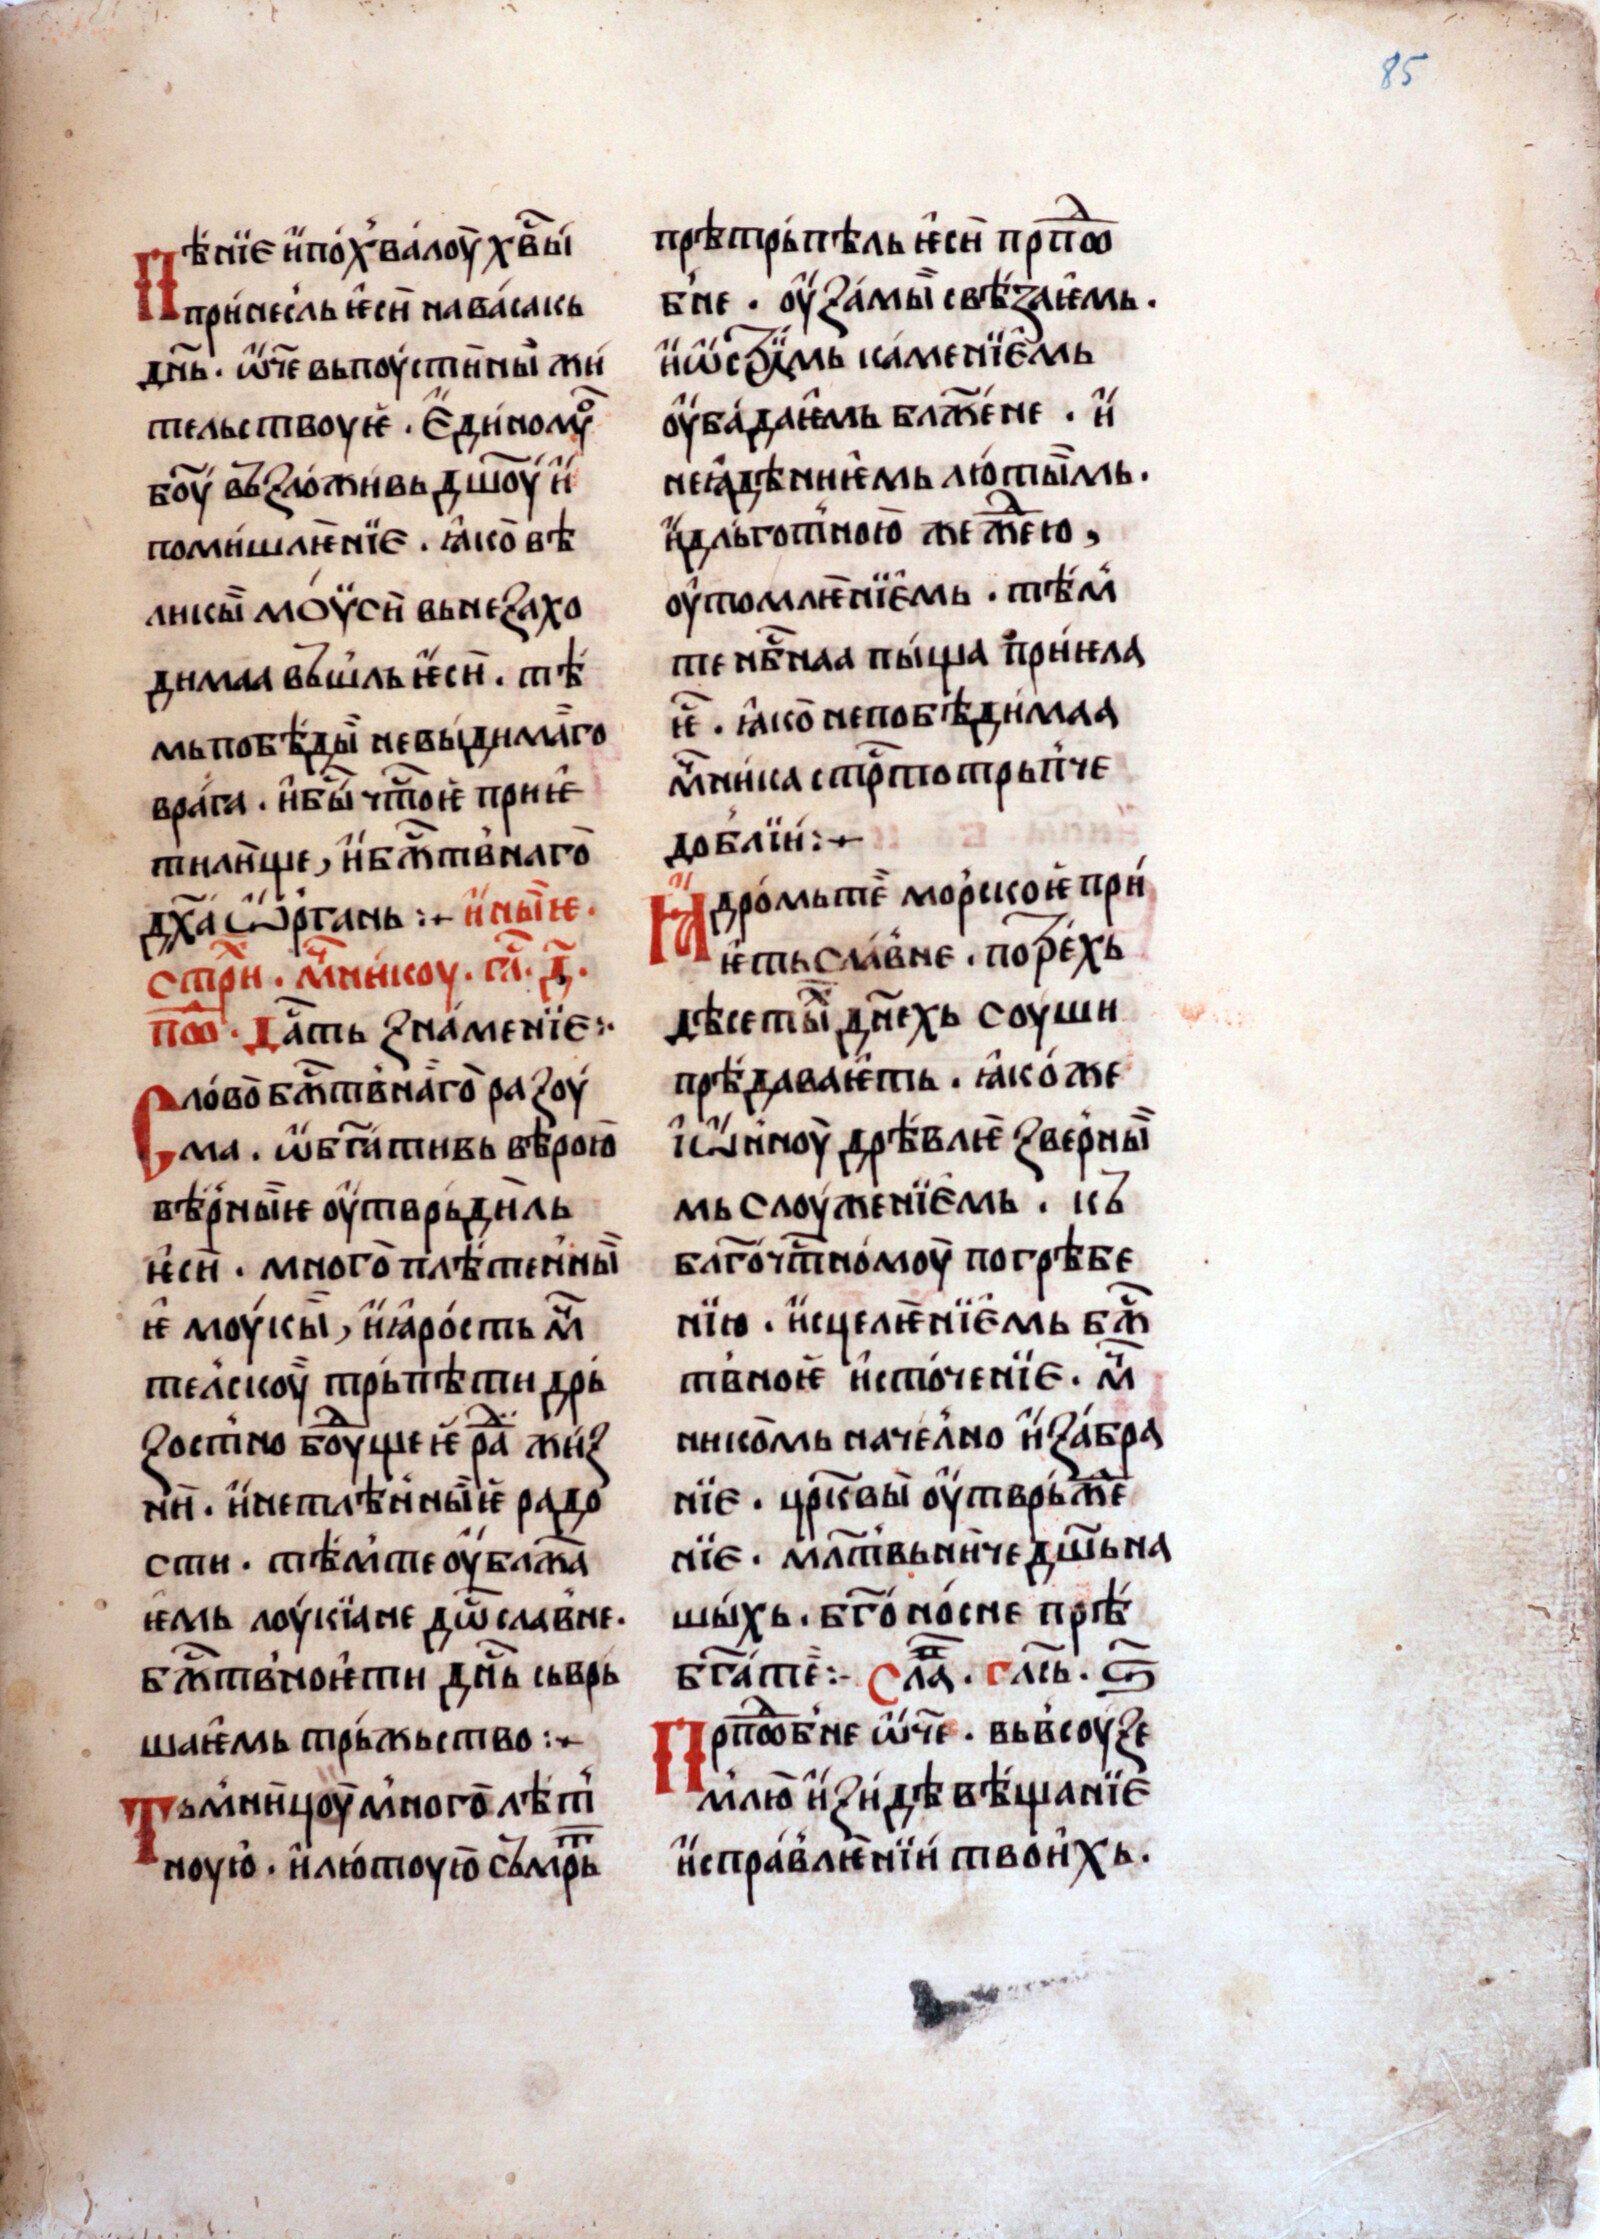 85
Пѣнїе и҆ похвалоу҆ хв҃ы
принесль ѥси на васакь
дн҃ь. ѡ҆ч҃е вь поустыны жи
тельствоуѥ. Е҆диномꙋ
бо҃у вьзложивь дш҃оу и҆
помишлѥнїе. ꙗ҆ко вѣ
ликы моѵси вь незахо
димаа вьшль ѥси. тѣ
мь побѣды невыдимаго
врага. и҆ бы чт҃оѥ приѥ
тилище, и҆ бжⷭ҇твнаго
дх҃а ѡ҆ргань:⁓ и҆ ныꙗ.
стр҃и. мⷱ҇нникоу. гл҃. д҃.
пⷪ҇. Дасть знаменїе:
Слово бжⷭ҇твнаго разоу
ма. ѡ҆бг҃ативь вѣрою
вѣрныѥ оу҆тврьдиль
ѥси. много плѣтенны
ѥ моукы, и҆ ꙗ҆рость мⷱ҇
телскоу трьпѣти дрь
зостно боудⷣущеѥ радⷣ жиз
ни. и҆ нетлѣнныѥ радо
сти. тѣмте оу҆блажа
ѥмь лоукїане дⷭ҇ѡславне.
бжⷭ҇твноѥ ти дн҃ь сьврь
шаѥмь трьжьство:⁓
Тьмницоу многолѣт
ноую. и҆ лютоую сьмрⷮь
прѣтрьпѣль ѥси прпⷣо
бне. оу҆замы свѣзаѥмь.
и҆ ѡ҆стрїмь каменїѥмь
оу҆бадаѥмь блаж҃ене. и҆
неꙗдѣниѥмь лютымь.
и҆ дльготною же жеⷣею,
оу҆томлѥнїемь. тѣм
те нбⷭ҇наа пыща приѥла
ѥ. ꙗ҆ко непобѣдимаа
мⷱ҇ника стрⷭ҇тотрьпче
доблїи:⁓
Ꙗдромь те морскоѥ при
ѥть славне. по трехь
дѣсетыⷯ днехь соуши
прѣдаваѥть. ꙗ҆коже
і҆ѡнноу дрѣвлѥ зверны
мь слоуженїемь. кь
благочтⷭ҇номоу погрѣбе
нїю. и҆сцелѥнїемь бжⷭ҇
твноѥ источенїе. мⷱ҇
никомь начелно и҆ забра
нїе. црк҃вы оу҆тврьжде
нїе. млтⷭ҇вьниче дш҃ь на
шыхь. бг҃оносне прѣ
бг҃ате:⁓ слаⷡ. глⷭ҇ь. ѕ҃
Прпⷣобне ѡ҆ч҃е. вь всоу зе
млю и҆зиде вѣщанїе
и҆справлѥнїи твоихь.